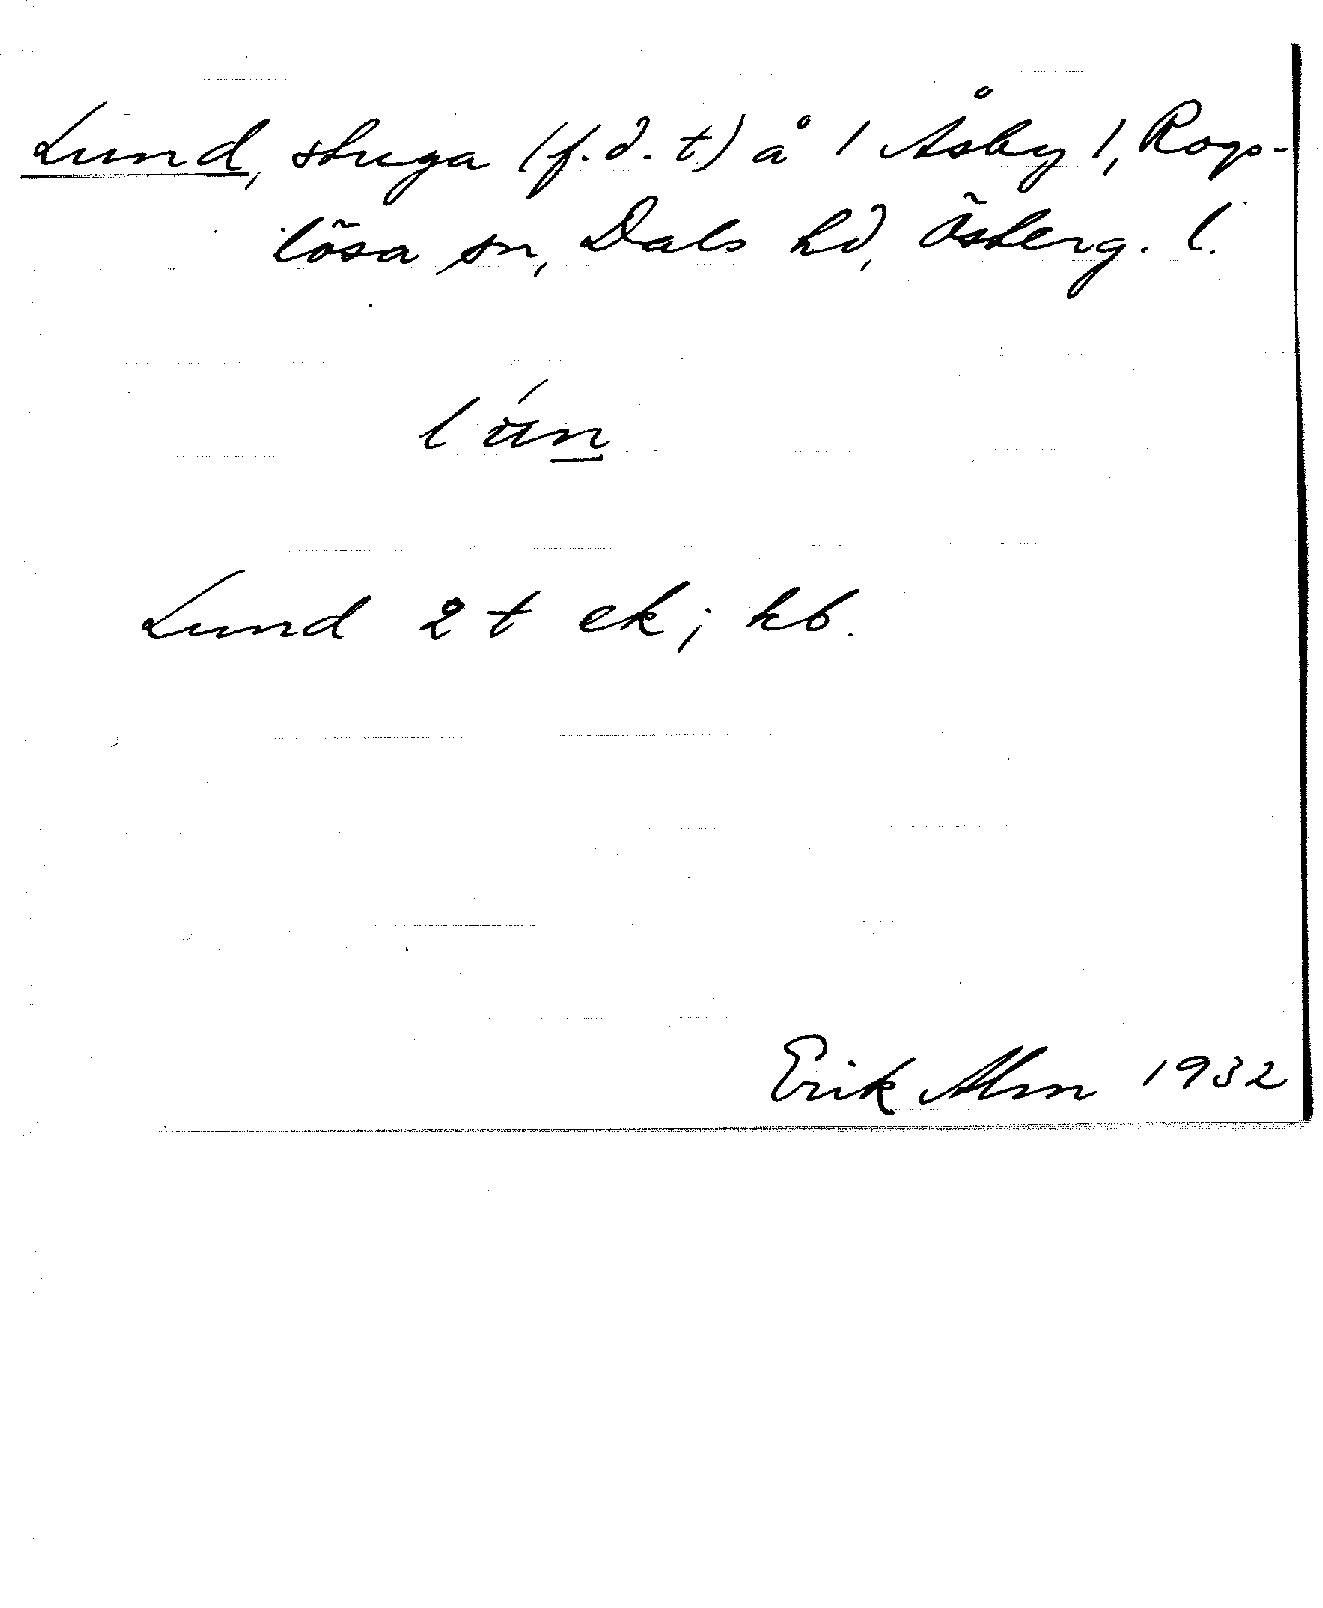 Lund, stuga (f.d. t) å 1 Åsby 1, Rogs-
lösa sn, Dals hd, Österg. l.
lún
Lund 2 t ek; kb.
Erik Alm 1932